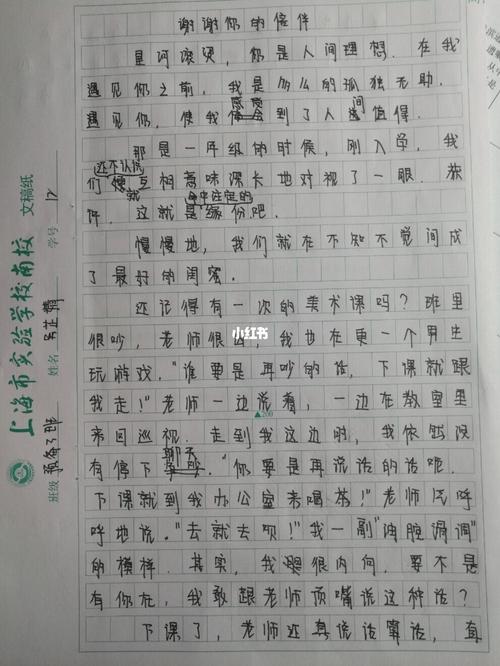 谢谢你的陪伴
星河滚烫，你是人间理想。在我
遇见你之前，我是多么的孤独无助。
遇见你，使我感受到了人间值得。
那是一年级的时候，刚入学，我
们还不认识就互相意味深长地对视了一眼。
命中注定的
这就是缘份吧。
慢慢地，我们就在不知不觉间成
了最好的闺蜜。
还记得有一次的美术课吗？班里
很吵，老师很凶，我也在更一个男生
玩游戏。"谁要是再吵的话，下课就跟
我走！"老师一边说着，一边在教室里
来回巡视。走到我这边时，我依然没
有停下聊天。"你要是再说话的话呢，
下课就到我办公室来喝茶！"老师气呼
呼地说。"去就去呗！"我一副"油腔滑调"
的模样。其实，我很内向，要不是
有你在，我敢跟老师顶嘴说这种话？
下课了，老师还真说话算话，直
上海市实验学校南校
文稿纸
班级 预备3班
姓名
学号 12
小红书